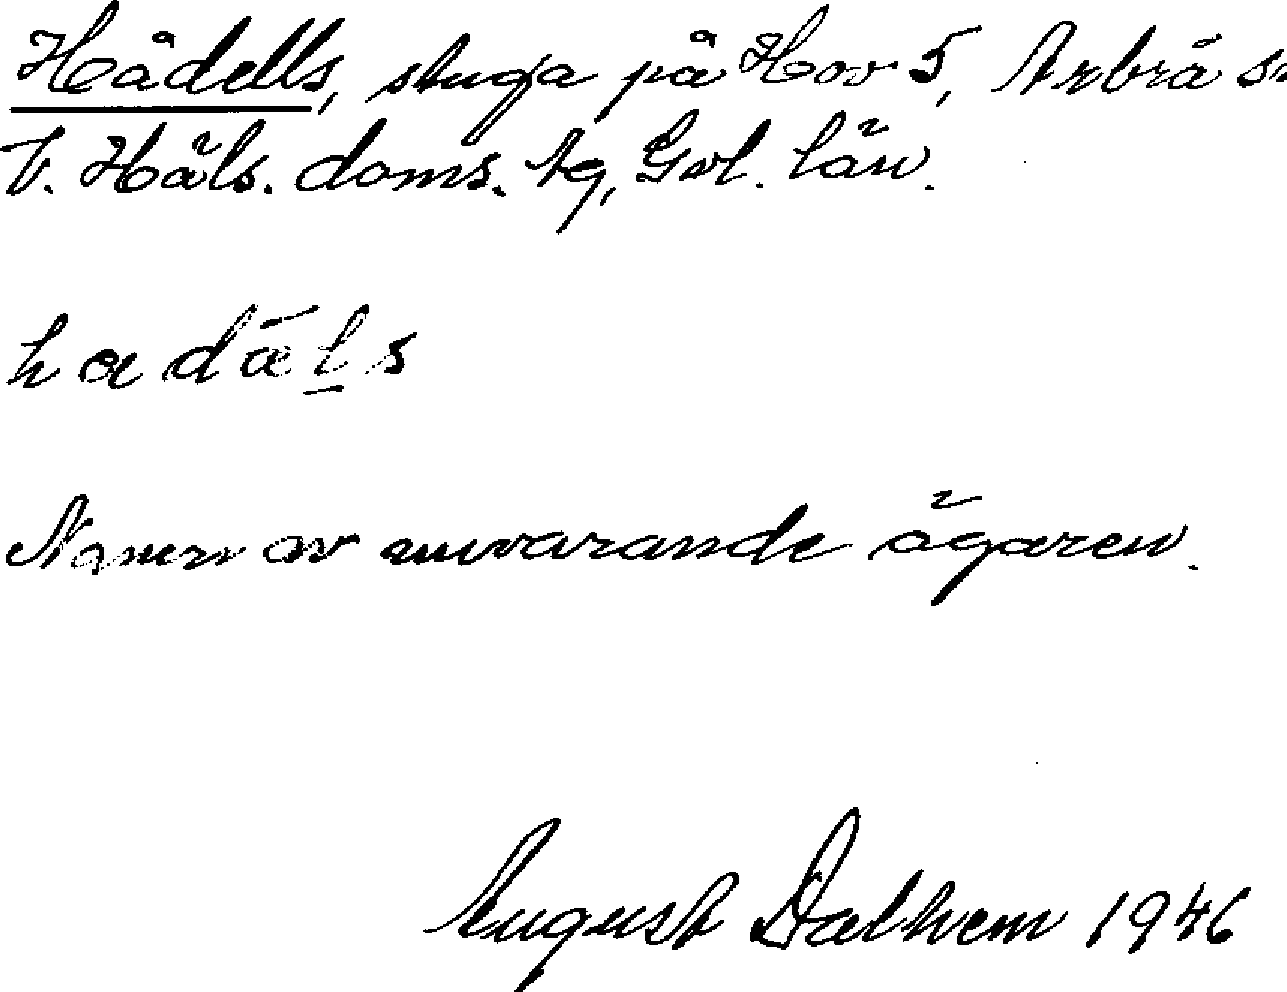 Hådells, stuga på Hov 5, Arbrå sn
V. Häls. doms. tg, Gvl. län.
h a d ǽ l s
Namn av nuvarande ägaren.
August Dalhem 1946